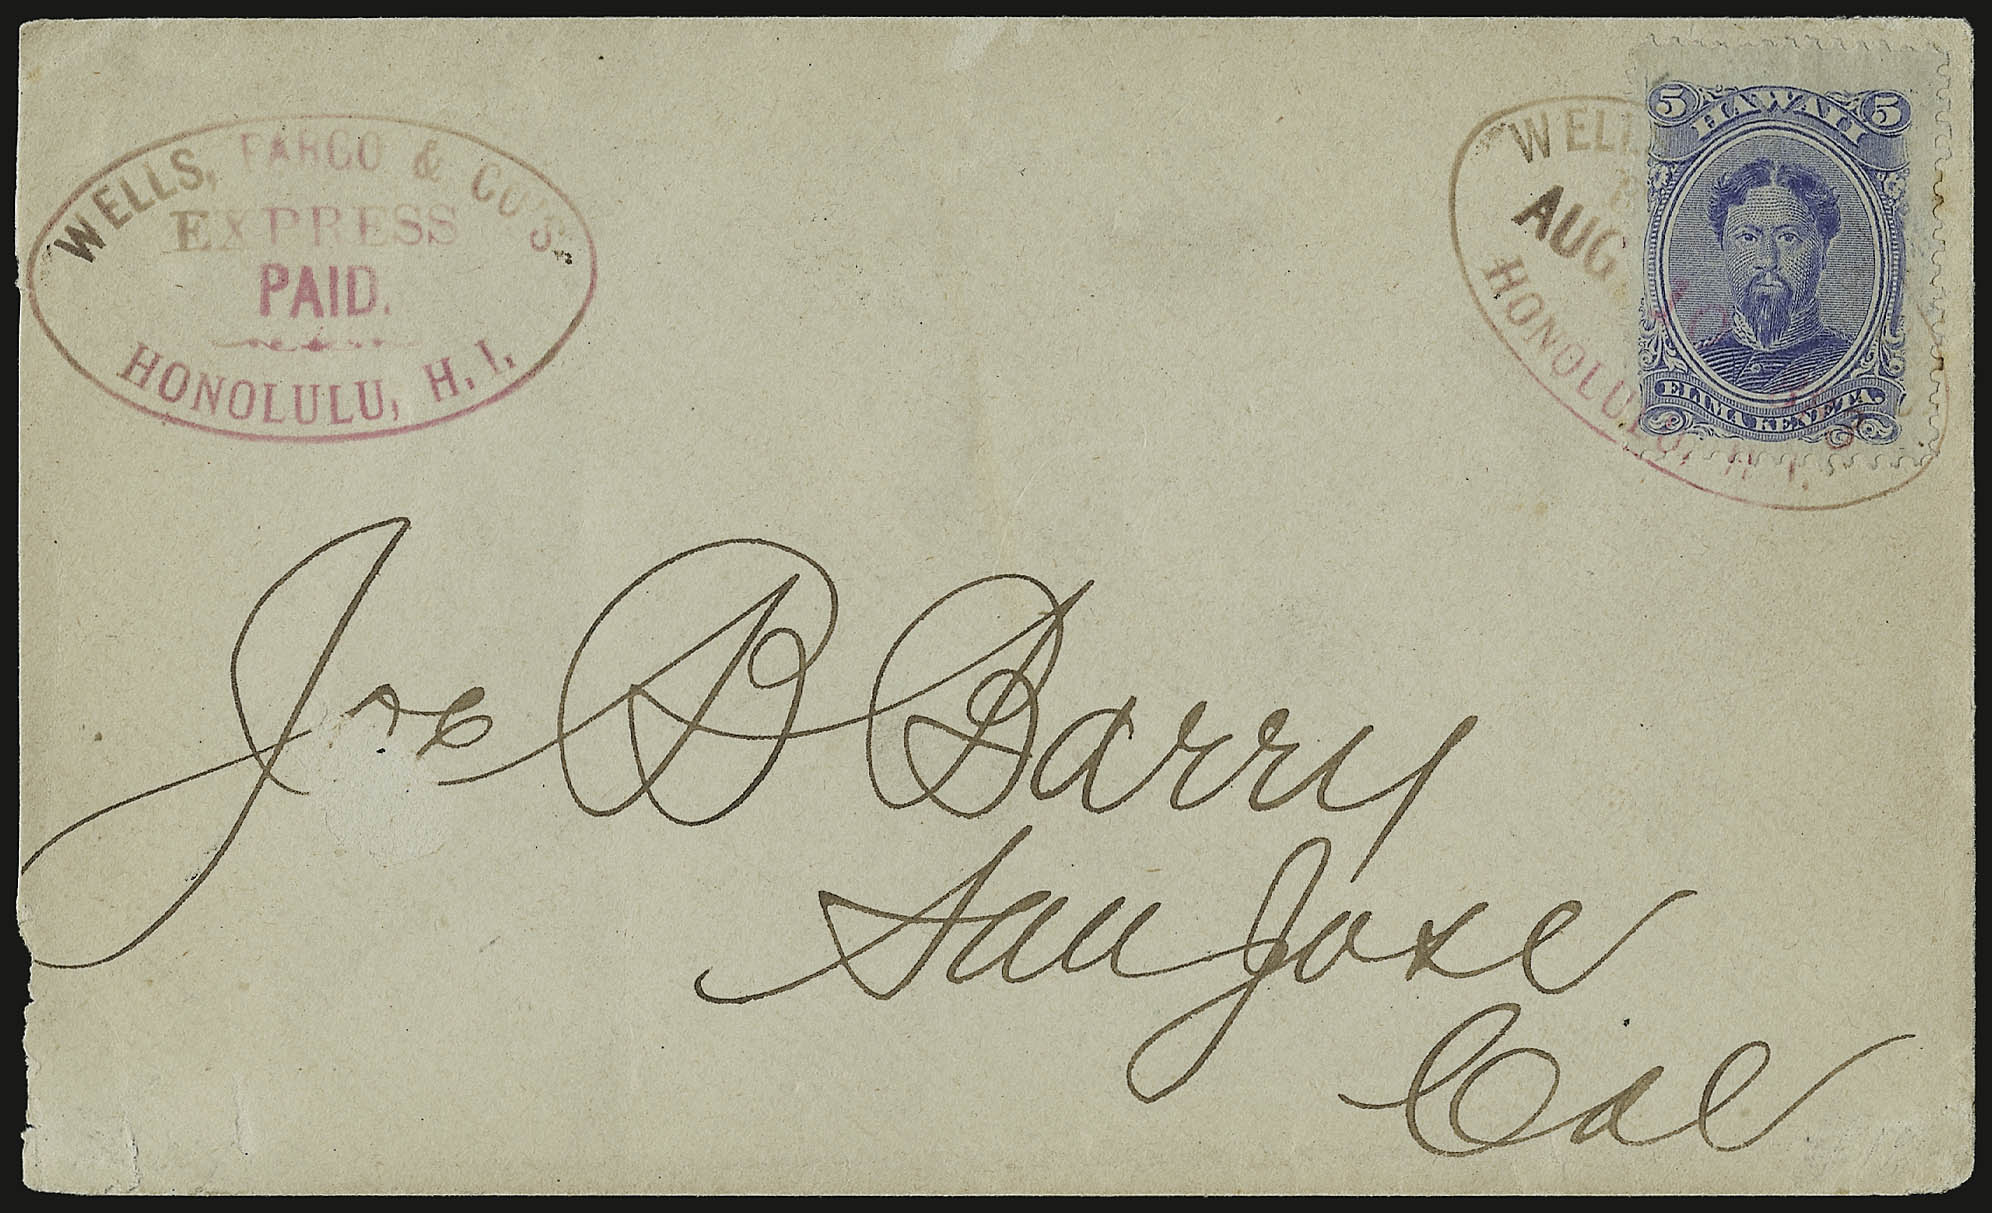 WELLS, FARGO & CO'S
EXPRESS
PAID.
HONOLULU, H. I.
WELL
AUG
HONOLULU, H. I.
5 HAWAII 5
ELIMA KENETA
Joe B Barry
San Jose
Cal